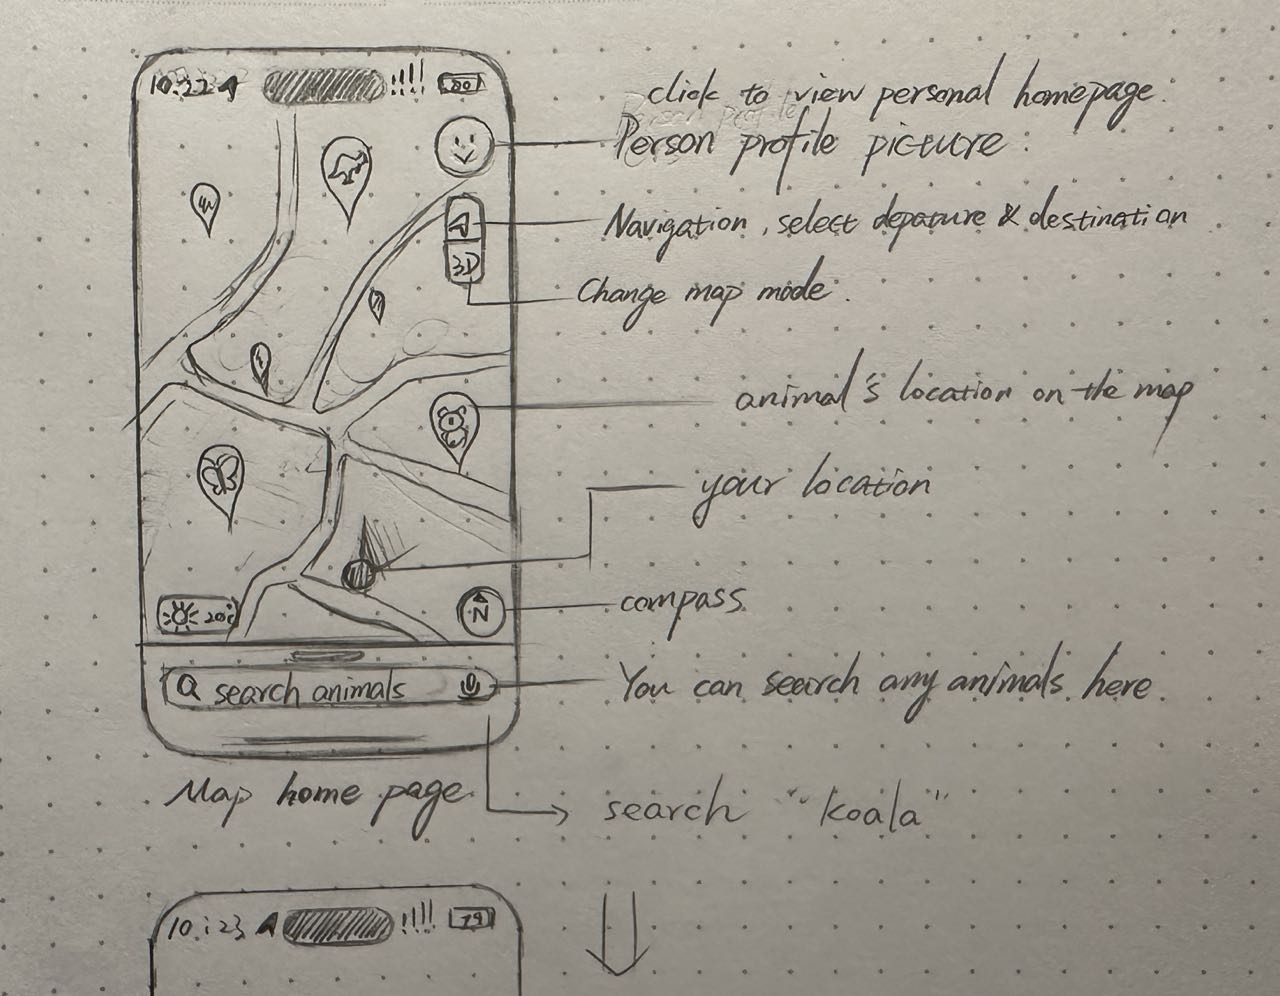 10:22
80
click to view personal homepage.
Person profile picture:
Navigation, select depature & destination
3D
Change map mode.
animal's location on the map
your location
20°C
N
compass
search animals
You can search any animals here
Map home page
search "koala"
10:23
79